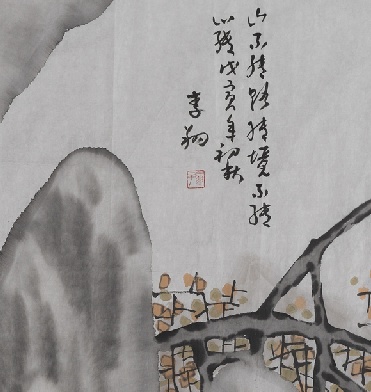 山不转路转境不转
心转戊寅年初秋
李翔